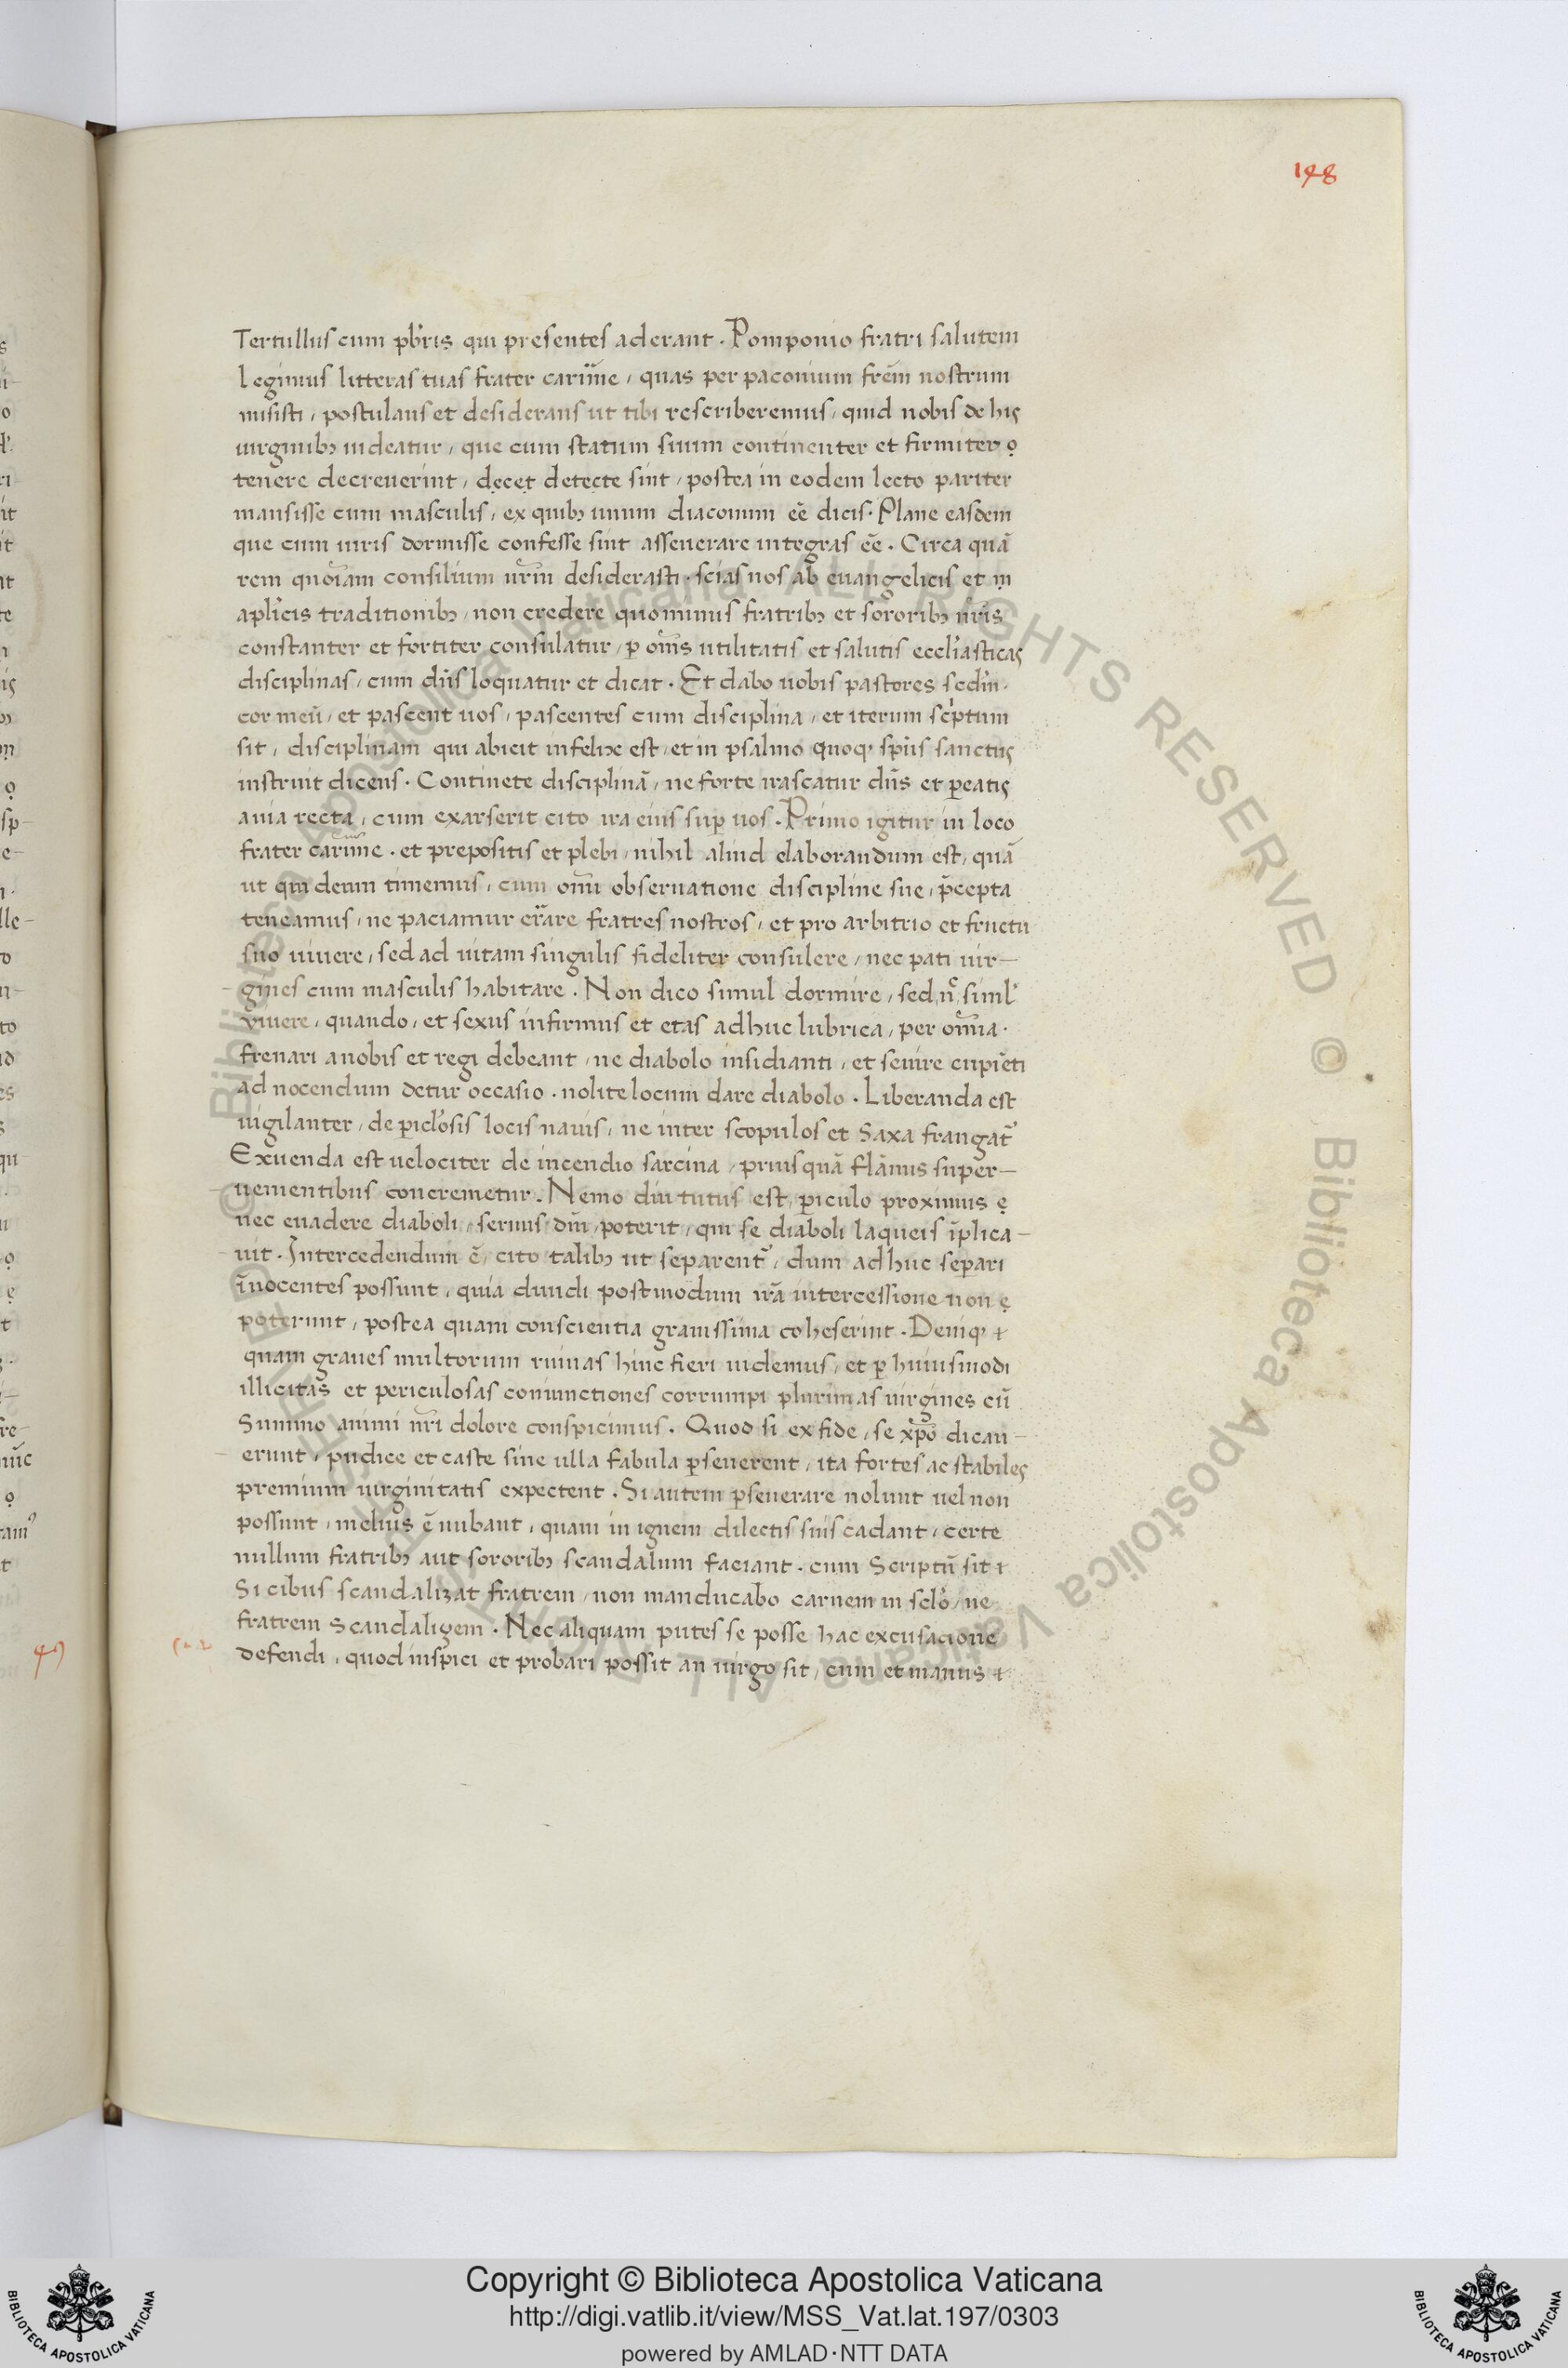 148
Tertullus cum pb̄ris qui presentes aderant . Pomponio fratri salutem
Legimus litteras tuas frater cariīme , quas per paconium frēm nostrum
misisti , postulans et desiderans ut tibi rescriberemus , quid nobis de his
uirginibꝫ uideatur , que cum statum suum continenter et firmiter ọ
tenere decreuerint , dẹcẹt detecte sint , postea in eodem lecto pariter
mansisse cum masculis , ex quibꝫ unum diaconum eē dicis . Plane easdem
que cum uiris dormisse confesse sint asseuerare integras eē . Circa quā
rem quoīam consilium ur̄m desiderasti . scias nos ab euangelicis et ṃ
apl̄icis traditionibꝫ , non credere quominus fratribꝫ et sororibꝫ nr̄is
constanter et fortiter consulatur , ꝑ om̄s utilitatis et salutis eccl̄iasticas
disciplinas , cum dn̄s loquatur et dicat . Et dabo uobis pastores sedm̄ .
cor meū , et pascent uos , pascentes cum disciplina , et iterum scͥptum
sit , disciplinam qui abicit infelix est , et in psalmo quoqꝫ sp̄us sanctus
instruit dicens . Continete disciplinā , ne forte irascatur dn̄s et ꝑeatis
a uia recta , cum exarserit cito ira eius suꝑ uos . Primo igitur in loco
frater carīme . et prepositis et plebi , nihil aliud elaborandum est , quā
ut qui deum timemus , cum om̄i obseruatione discipline sue , p̄cepta
teneamus , ne paciamur er̄are fratres nostros , et pro arbitrio et fructu
suo uiuere , sed ad uitam singulis fideliter consulere , nec pati uir-
gines cum masculis habitare . Non dico simul dormire , sed nͨ siml̕
viuere , quando , et sexus infirmus et etas adhuc lubrica , per om̄ia .
frenari a nobis et regi debeant , ne diabolo insidianti , et seuire cupiēti
ad nocendum detur occasio . nolite locum dare diabolo . Liberanda est
uigilanter , de ꝑicl̕osis locis nauis , ne inter scopulos et Saxa frangat̕
Exuenda est uelociter de incendio sarcina , priusquā flāmis super-
uenientibus concremetur . Nemo diu tutus est , ꝑiculo proximus ẹ
nec euadere diaboli , seruus dn̄i , poterit , qui se diaboli laqueis īplica-
uit . Intercedendum ē , cito talibꝫ ut separent̕ , dum adhuc seꝑari
īnocentes possunt , quia diuidi postmodum nr̄a intercessione non ẹ
poterunt , postea quam conscientia grauissima coheserint . Deniqꝫ
quam graues multorum ruinas hinc fieri uidemus , et ꝑ huiusmodi
illicitas et periculosas coniunctiones corrumpi plurimas uirgines cū
Summo animi nr̄i dolore conspicimus . Quod si ex fide , se xp̄o dicau-
erunt , pudice et caste sine ulla fabula ꝑseuerent , ita fortes ac stabiles
premium uirginitatis expectent . Si autem ꝑseuerare nolunt uel non
possunt , melius ē nubant , quam in ignem dilectis suis cadant , certe
nullum fratribꝫ aut sororibꝫ scandalum faciant . cum Scriptū sit
Si cibus scandalizat fratrem , non manducabo carnem in scl̄o , ne
fratrem Scandaligem . Nec aliquam putes se posse hac excusacione
defendi , quod inspici et probari possit an uirgo sit , cum et manus
© Biblioteca Apostolica Vaticana ALL RIGHTS RESERVED © Biblioteca Apostolica Vaticana ALL RIGHTS RESERVED
Copyright © Biblioteca Apostolica Vaticana
http://digi.vatlib.it/view/MSS_Vat.lat.197/0303
powered by AMLAD·NTT DATA
BIBLIOTECA APOSTOLICA VATICANA
BIBLIOTECA APOSTOLICA VATICANA